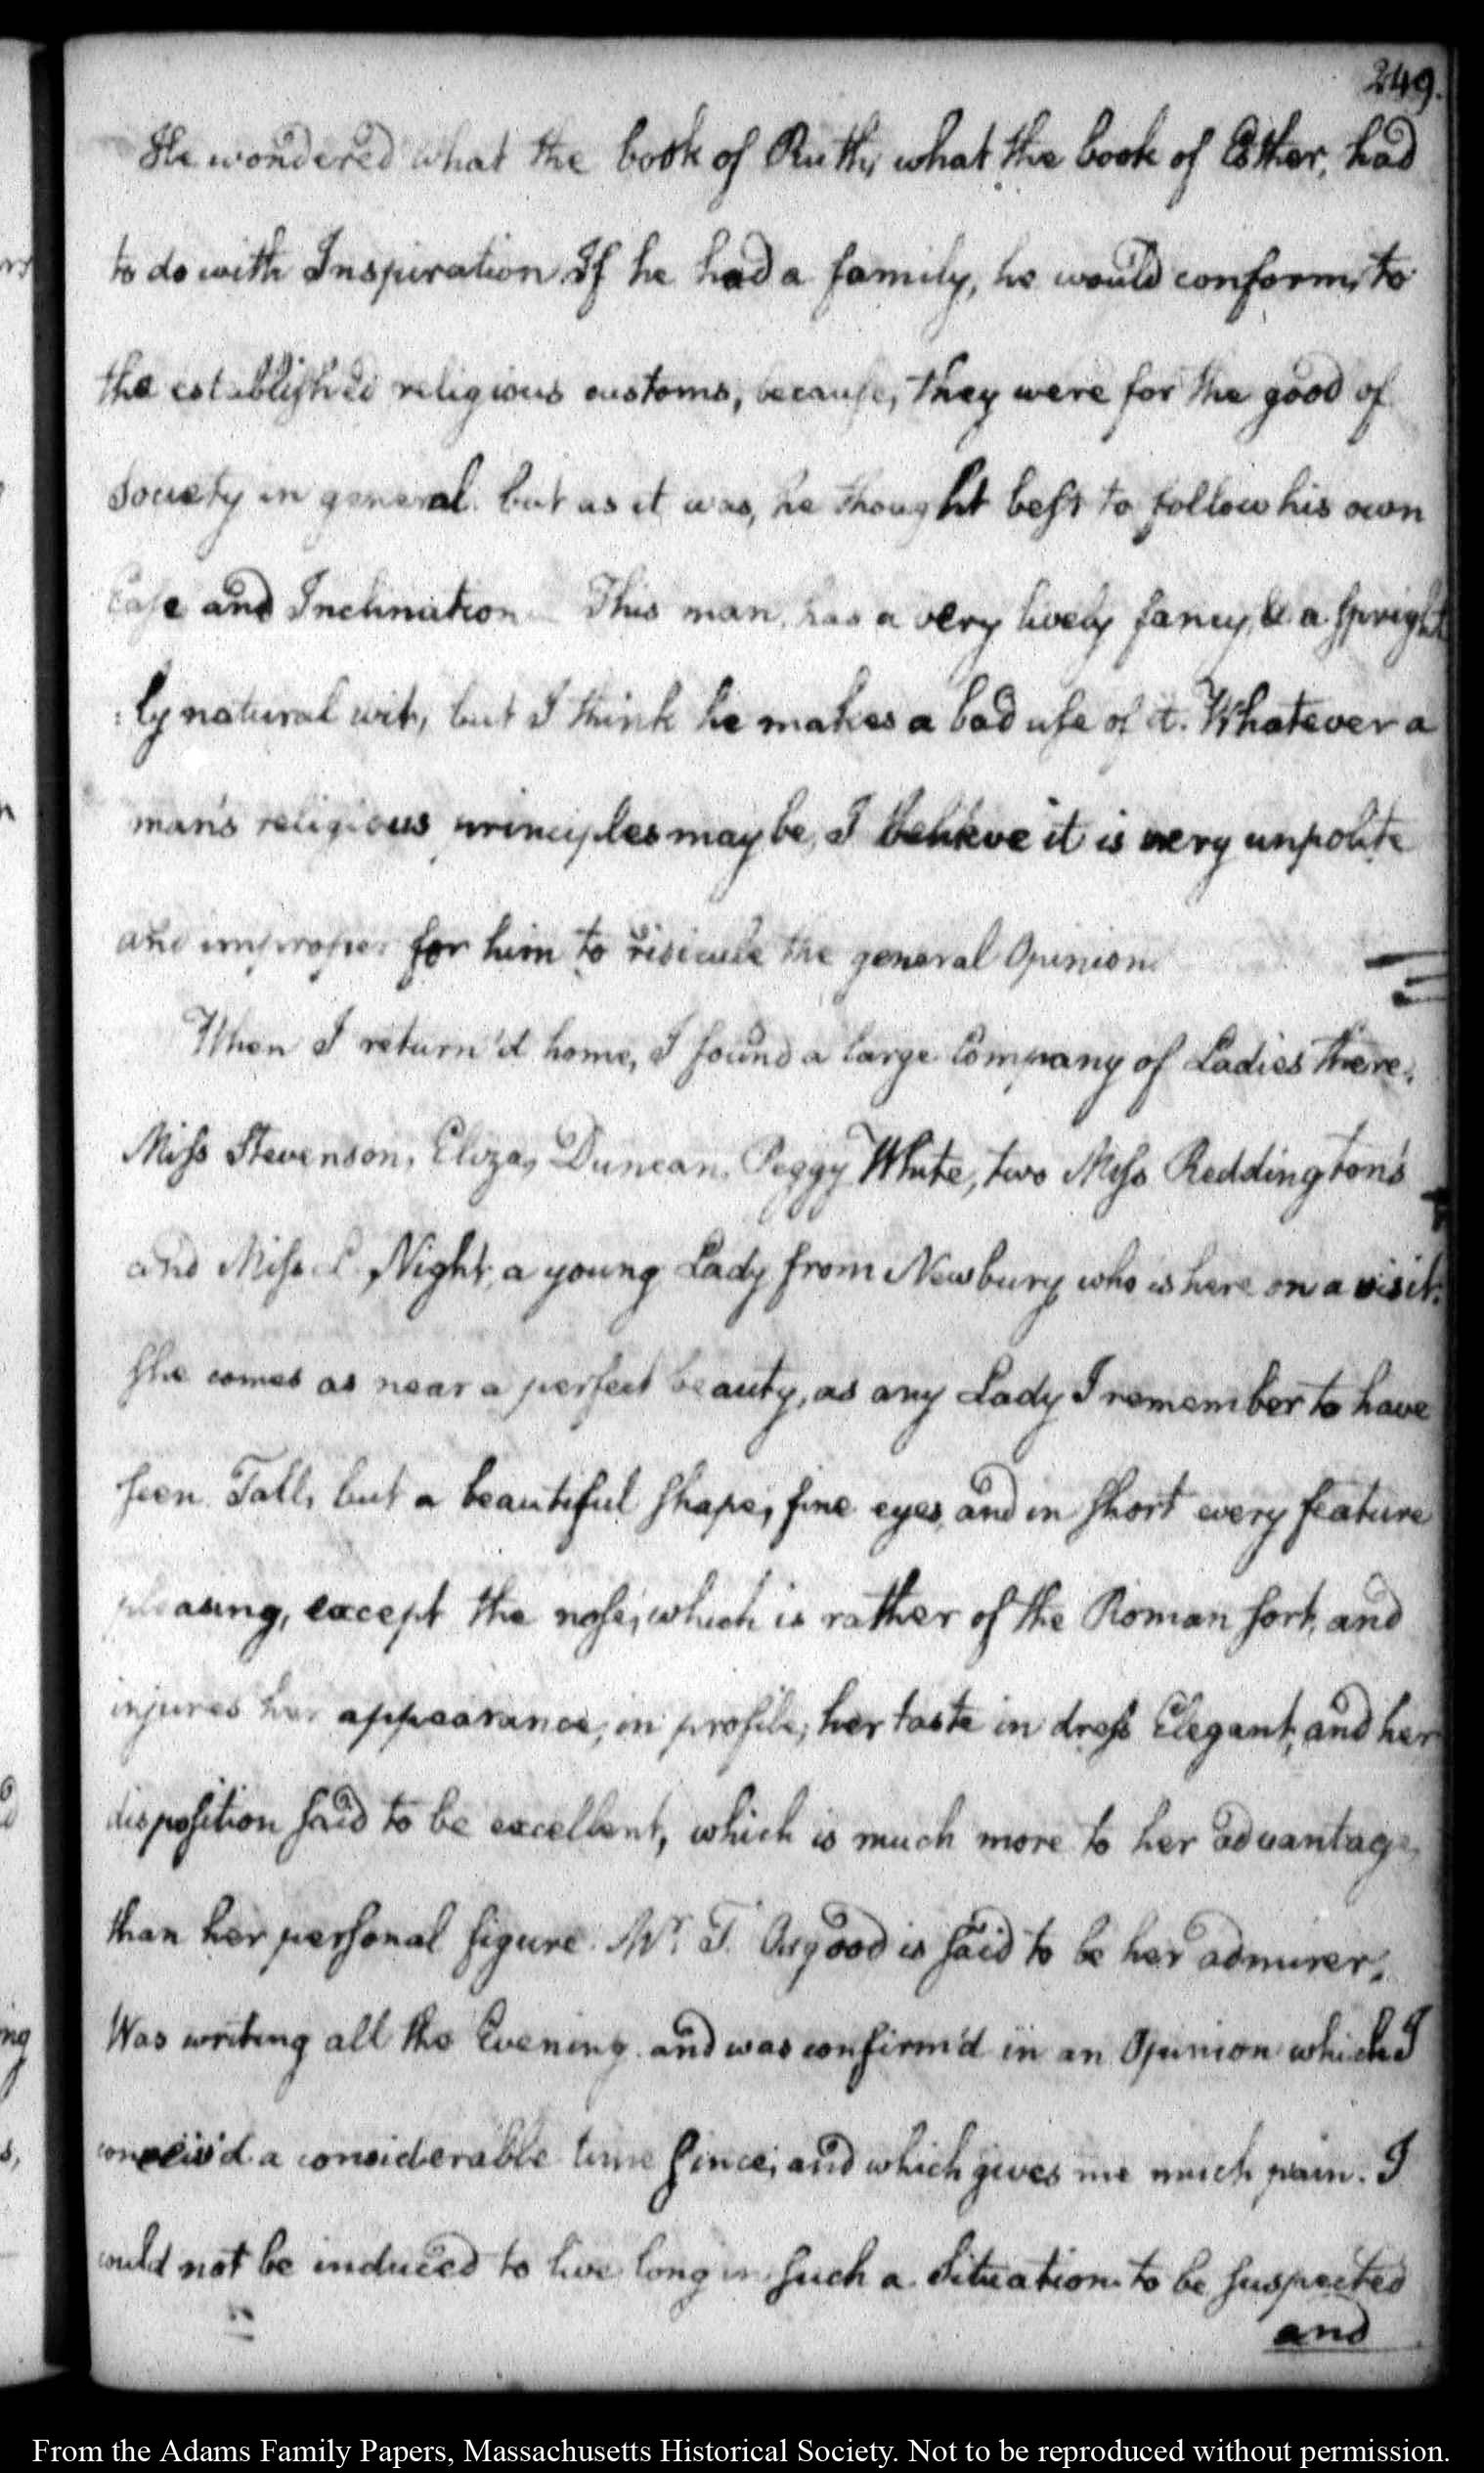 249.
He wondered what the book of Ruth, what the book of Esther, had
to do with Inspiration. If he had a family, he would conform, to
the established religious customs, because, they were for the good of
Society in general. but as it was, he thought best to follow his own
Ease and Inclination This man, has a very lively fancy, & a spright
:ly natural wit, but I think he makes a bad use of it. Whatever a
man's religious principles may be, I believe it is very unpolite
and improper for him to ridicule the general Opinion.
When I return'd home, I found a large Company of Ladies there.
Miss Stevenson, Eliza, Duncan, Peggy White, two Miss Reddington's
and Miss Night, a young Lady from Newbury who is here on a visit.
She comes as near a perfect beauty, as any Lady I remember to have
seen. Tall, but a beautiful shape, fine eyes, and in short every feature
pleasing, except the nose, which is rather of the Roman sort, and
injures her appearance, in profile; her taste in dress Elegant, and her
disposition said to be excellent, which is much more to her advantage,
than her personal figure. Mr. T. Osgood is said to be her admirer.
Was writing all the Evening and was confirm'd in an Opinion which I
conceiv'd a considerable time since; and which gives me much pain. I
could not be induced to live long in such a Situation. to be suspected
and
From the Adams Family Papers, Massachusetts Historical Society. Not to be reproduced without permission.